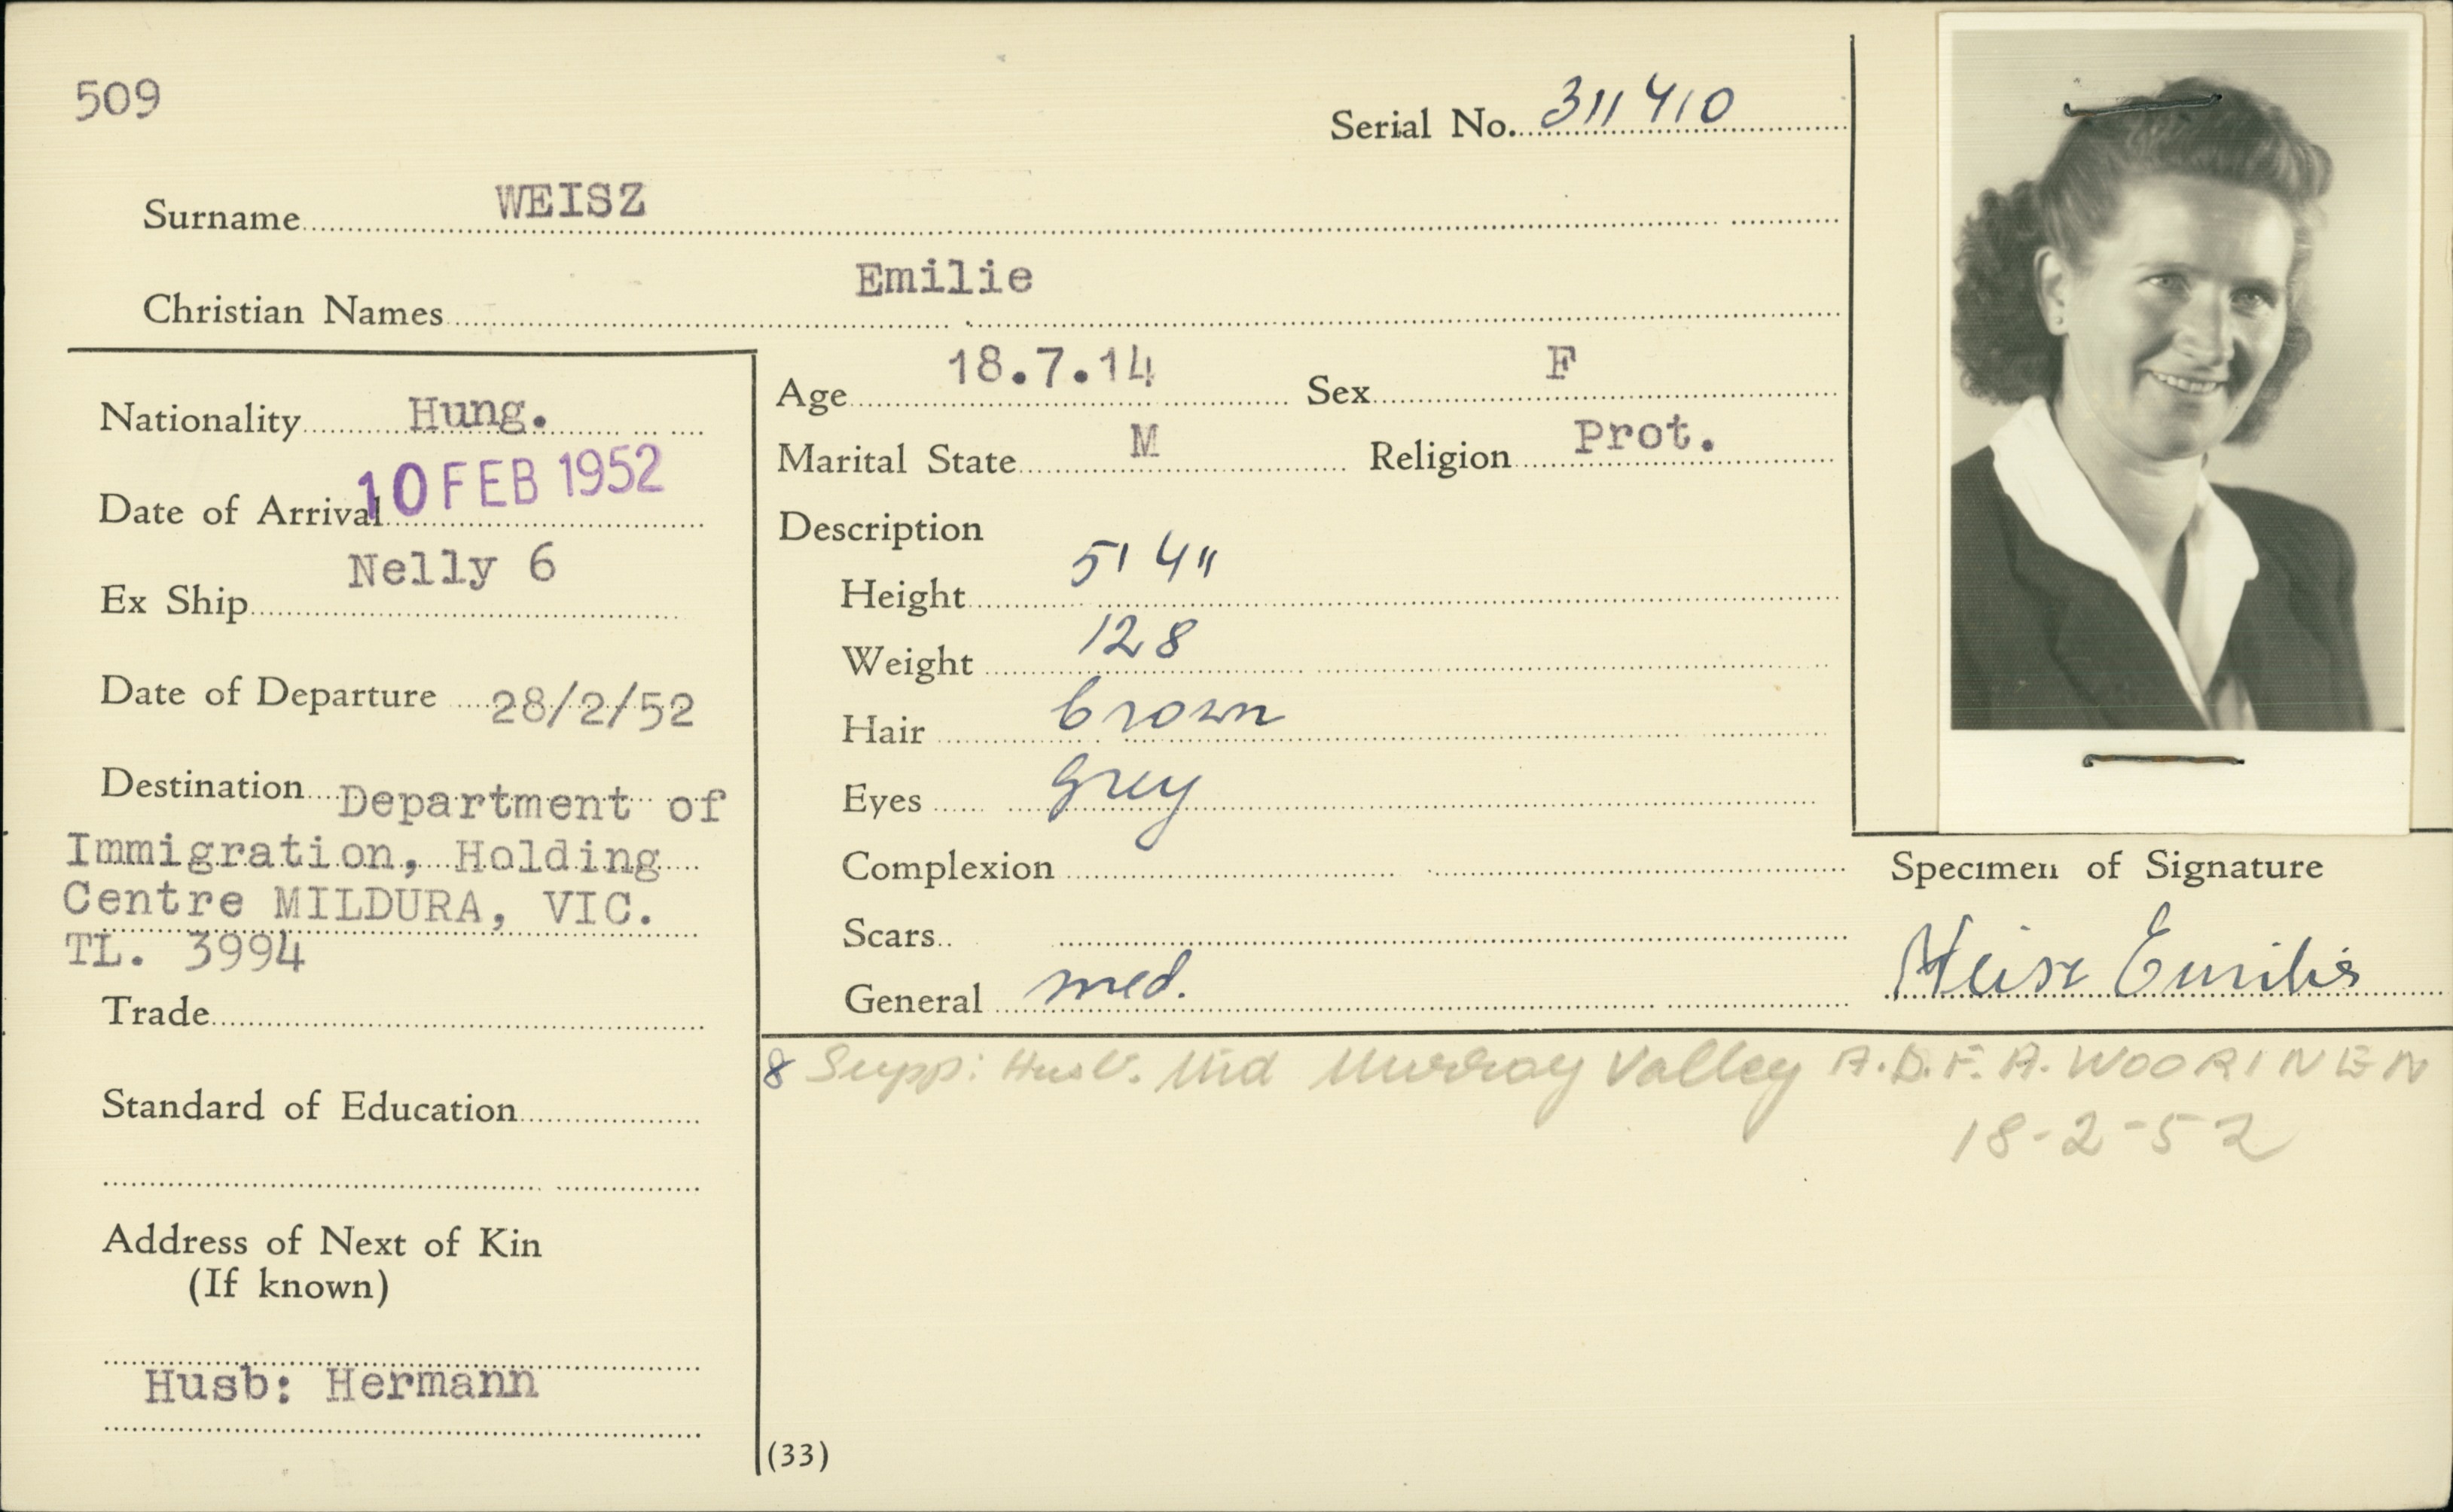 509
Serial No. 311410
Surname WEISZ
Christian Names Emilie
Nationality Hung.
Date of Arrival 10 FEB 1952
Ex Ship Nelly 6
Date of Departure 28/2/52
Destination Department of
Immigration, Holding
Centre MILDURA, VIC.
TL. 3994
Trade
Standard of Education
Address of Next of Kin
(If known)
Husb: Hermann
Age 18.7.14 Sex F
Marital State M Religion Prot.
Description
Height 5' 4"
Weight 128
Hair brown
Eyes grey
Complexion
Scars
General med.
Specimen of Signature
Weisz Emilie
8 Supp: Husb. Mid Murray Valley A.D.F.A. WOORINEN
18-2-52
(33)